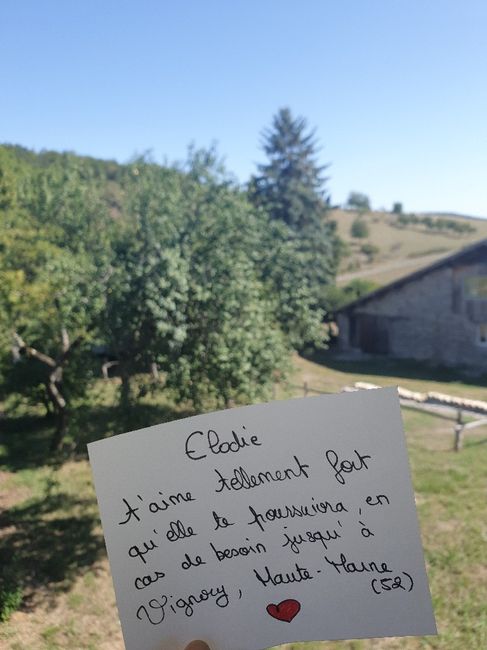 Elodie
t'aime tellement fort
qu'elle te poussuivra, en
cas de besoin jusqu'à
Vignory, Haute-Marne
(52)